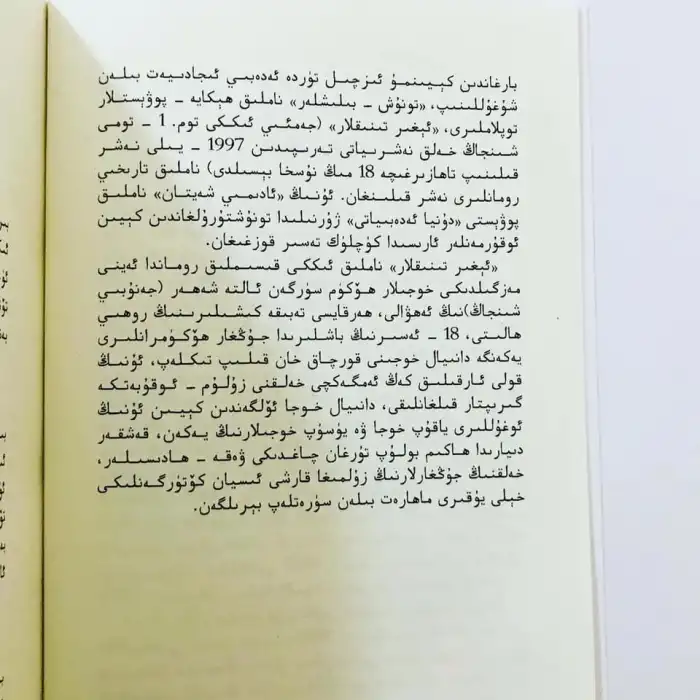 بارغاندىن كېيىنمۇ ئىزچىل تۈردە ئەدەبىي ئىجادىيەت بىلەن
شۇغۇللىنىپ، «تونۇش - بىلىشلەر» ناملىق ھېكايە - پوۋېستلار
توپلاملىرى، «ئېغىر تىنىقلار» (جەمئىي ئىككى توم. 1 - تومى
شىنجاڭ خەلق نەشرىياتى تەرىپىدىن 1997 - يىلى نەشر
قىلىنىپ تاھازىرغىچە 18 مىڭ نۇسخا بېسىلدى) ناملىق تارىخىي
رومانلىرى نەشر قىلىنغان. ئۇنىڭ «ئادىمىي شەيتان» ناملىق
پوۋېستى «دۇنيا ئەدەبىياتى» ژۇرنىلىدا تونۇشتۇرۇلغاندىن كېيىن
ئوقۇرمەنلەر ئارىسىدا كۈچلۈك تەسىر قوزغىغان.
«ئېغىر تىنىقلار» ناملىق ئىككى قىسىملىق روماندا ئەينى
مەزگىلدىكى خوجىلار ھۆكۈم سۈرگەن ئالتە شەھەر (جەنۇبىي
شىنجاڭ)نىڭ ئەھۋالى، ھەرقايسى تەبىقە كىشىلىرىنىڭ روھىي
ھالىتى، 18 - ئەسىرنىڭ باشلىرىدا جۇڭغار ھۆكۈمرانلىرى
يەكەنگە دانىيال خوجىنى قورچاق خان قىلىپ تىكلەپ، ئۇنىڭ
قولى ئارقىلىق كەڭ ئەمگەكچى خەلقنى زۇلۇم - ئوقۇبەتكە
گىرىپتار قىلغانلىقى، دانىيال خوجا ئۆلگەندىن كېيىن ئۇنىڭ
ئوغۇللىرى ياقۇپ خوجا ۋە يۈسۈپ خوجىلارنىڭ يەكەن، قەشقەر
دىيارىدا ھاكىم بولۇپ تۇرغان چاغدىكى ۋەقە - ھادىسىلەر،
خەلقنىڭ جۇڭغارلارنىڭ زۇلمىغا قارشى ئىسيان كۆتۈرگەنلىكى
خېلى يۇقىرى ماھارەت بىلەن سۈرەتلەپ بېرىلگەن.